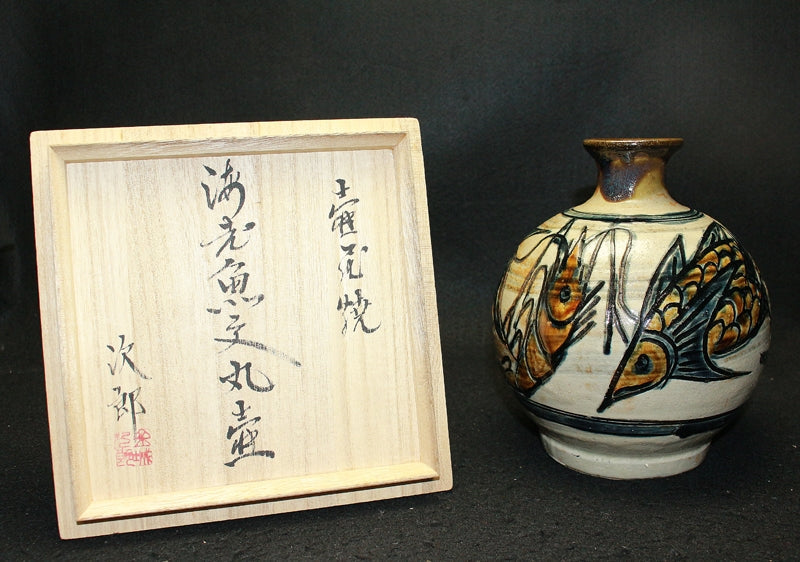 壷屋焼
海老魚文丸壷
次郎